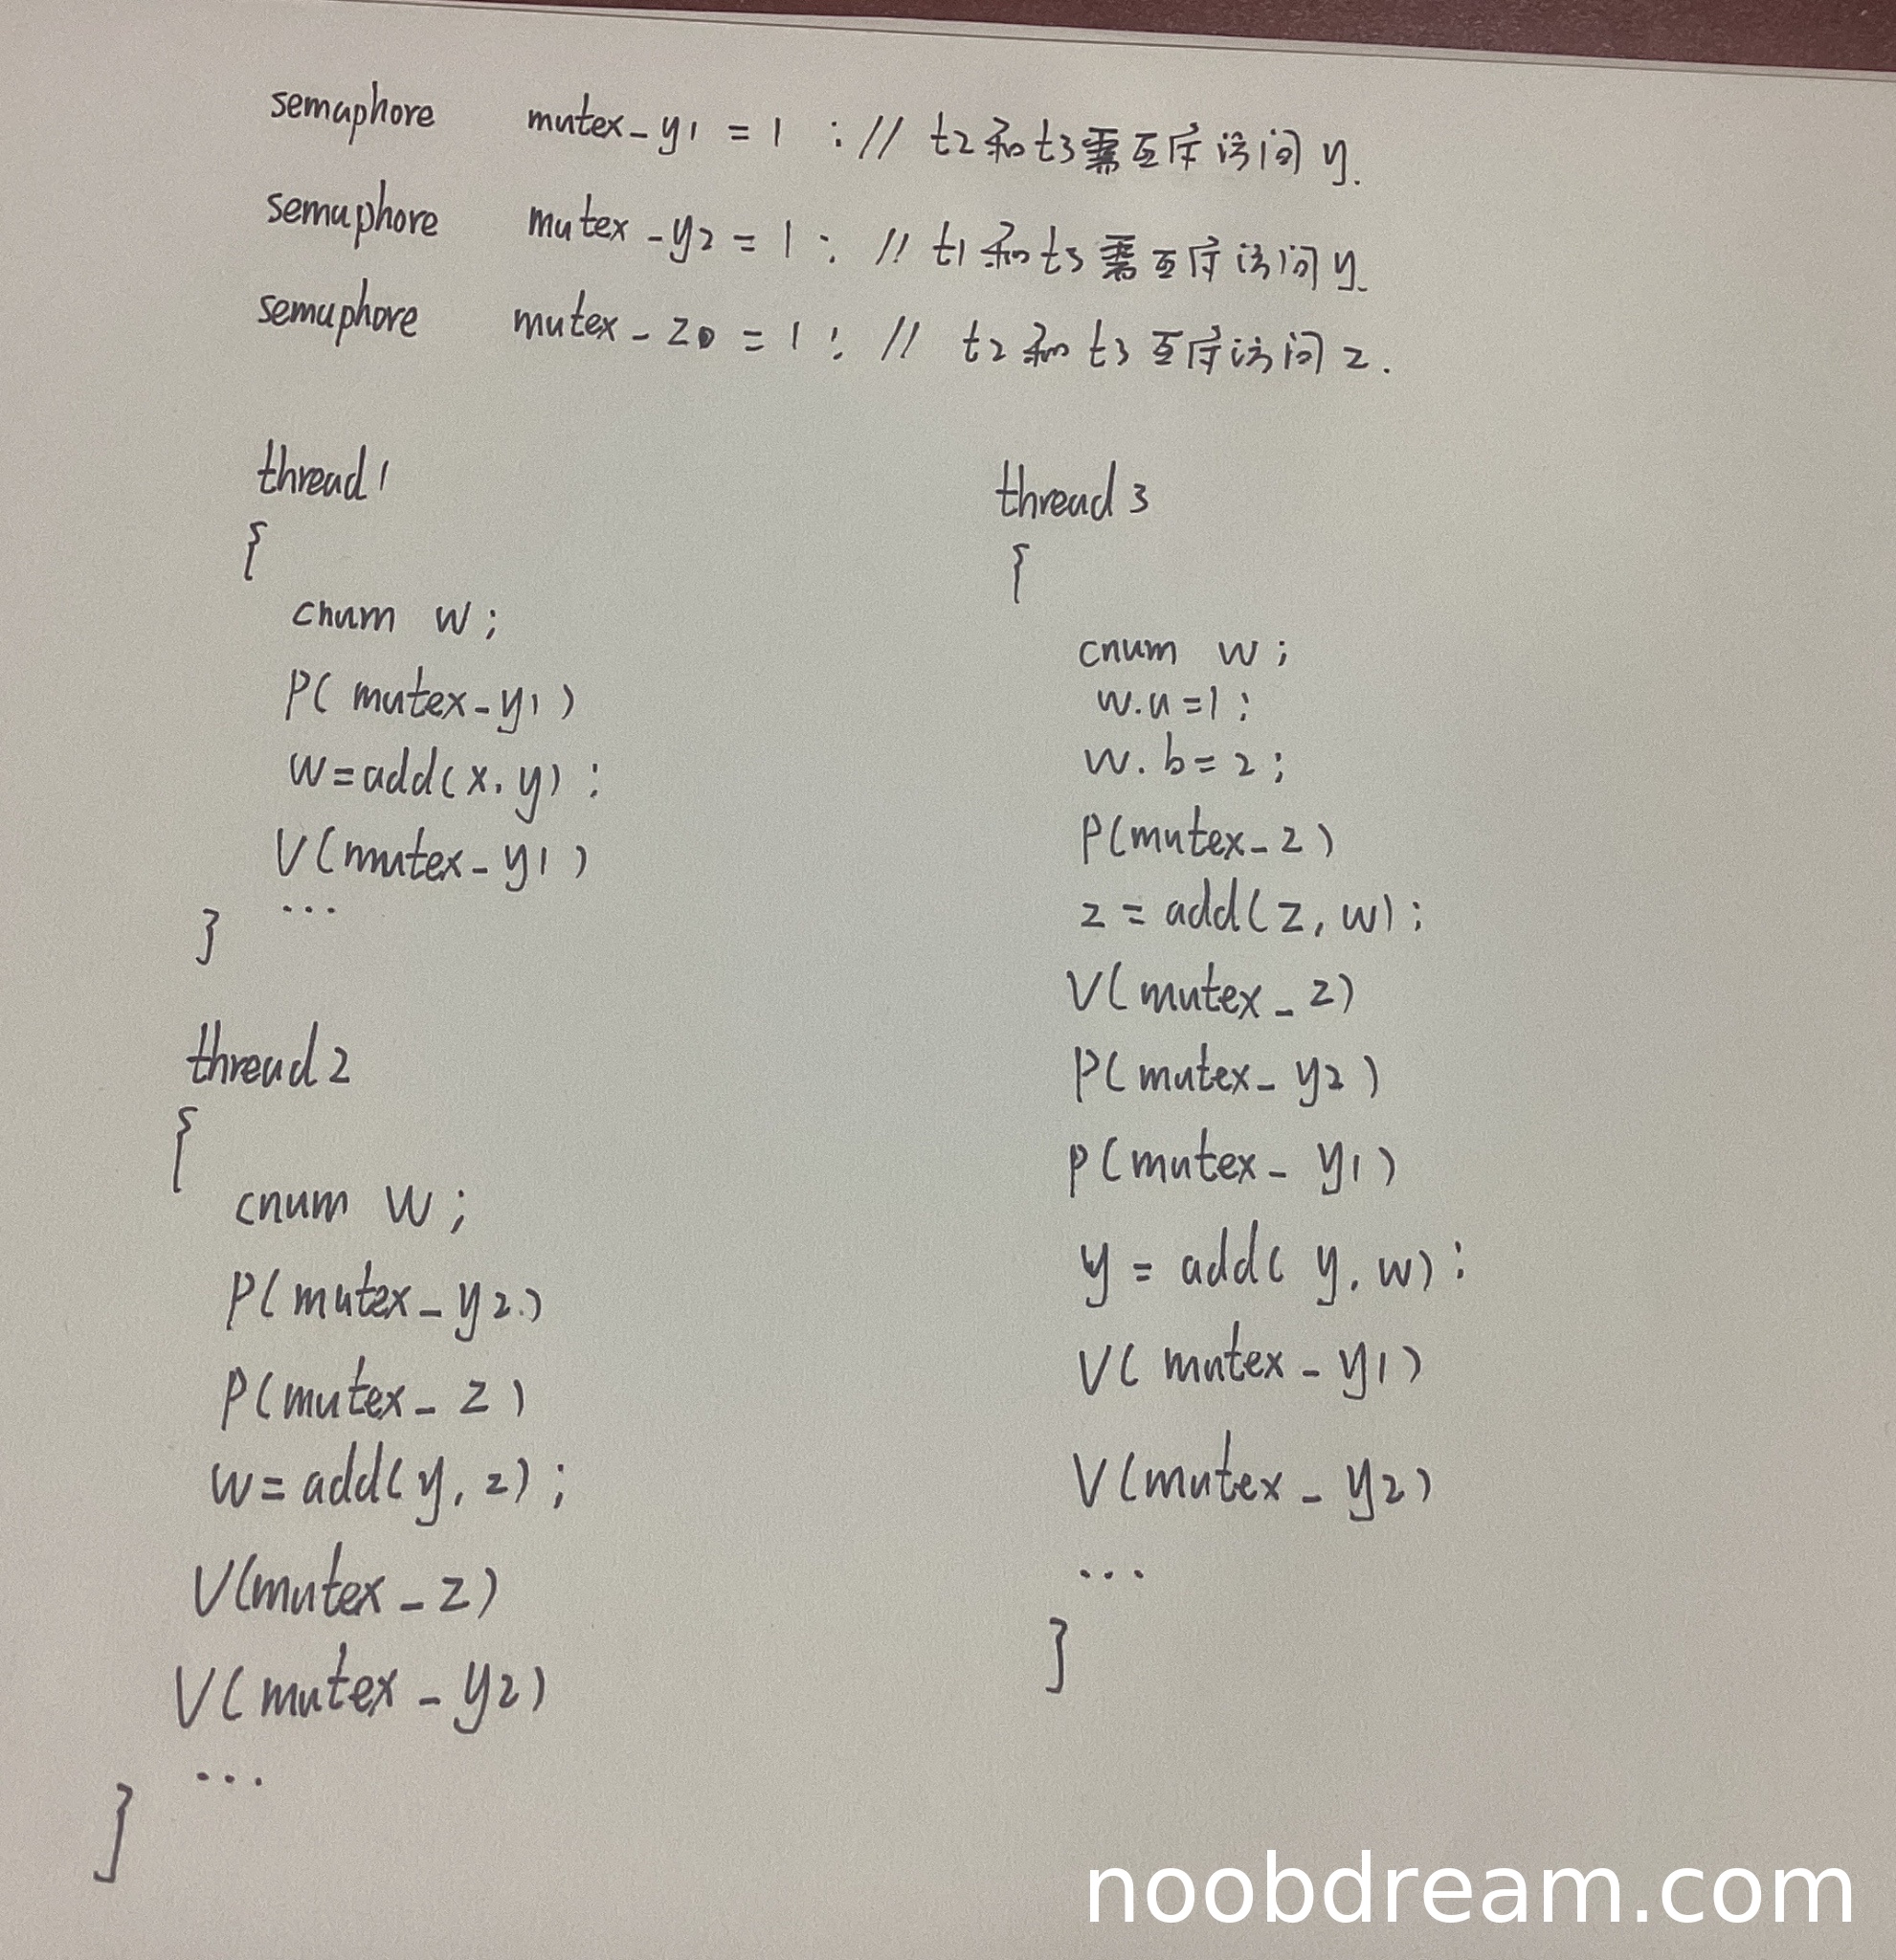 semaphore mutex_y1 = 1 ; // t2和t3需互斥访问y.
semaphore mutex_y2 = 1 ; // t1和t3需互斥访问y.
semaphore mutex_z = 1 ; // t2和t3互斥访问z.
thread1
{
cnum w;
P(mutex_y1)
w=add(x,y);
V(mutex_y1)
...
}
thread2
{
cnum w;
P(mutex_y2)
P(mutex_z)
w=add(y,z);
V(mutex_z)
V(mutex_y2)
...
}
thread3
{
cnum w;
w.a=1;
w.b=2;
P(mutex_z)
z=add(z,w);
V(mutex_z)
P(mutex_y2)
P(mutex_y1)
y=add(y,w);
V(mutex_y1)
V(mutex_y2)
...
}
noobdream.com